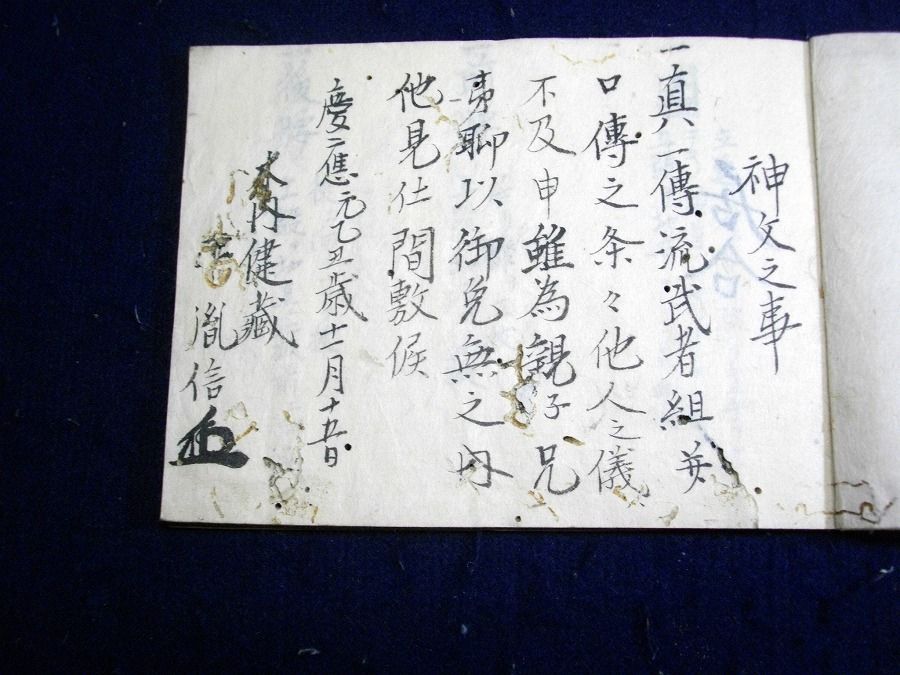 神文之事
一真一傳流武者組并
口傳之条々他人之儀
不及申雖為親子兄
弟聊以御免無之内
他見仕間敷候
慶應元乙丑歳十一月十五日
木内健藏
胤信